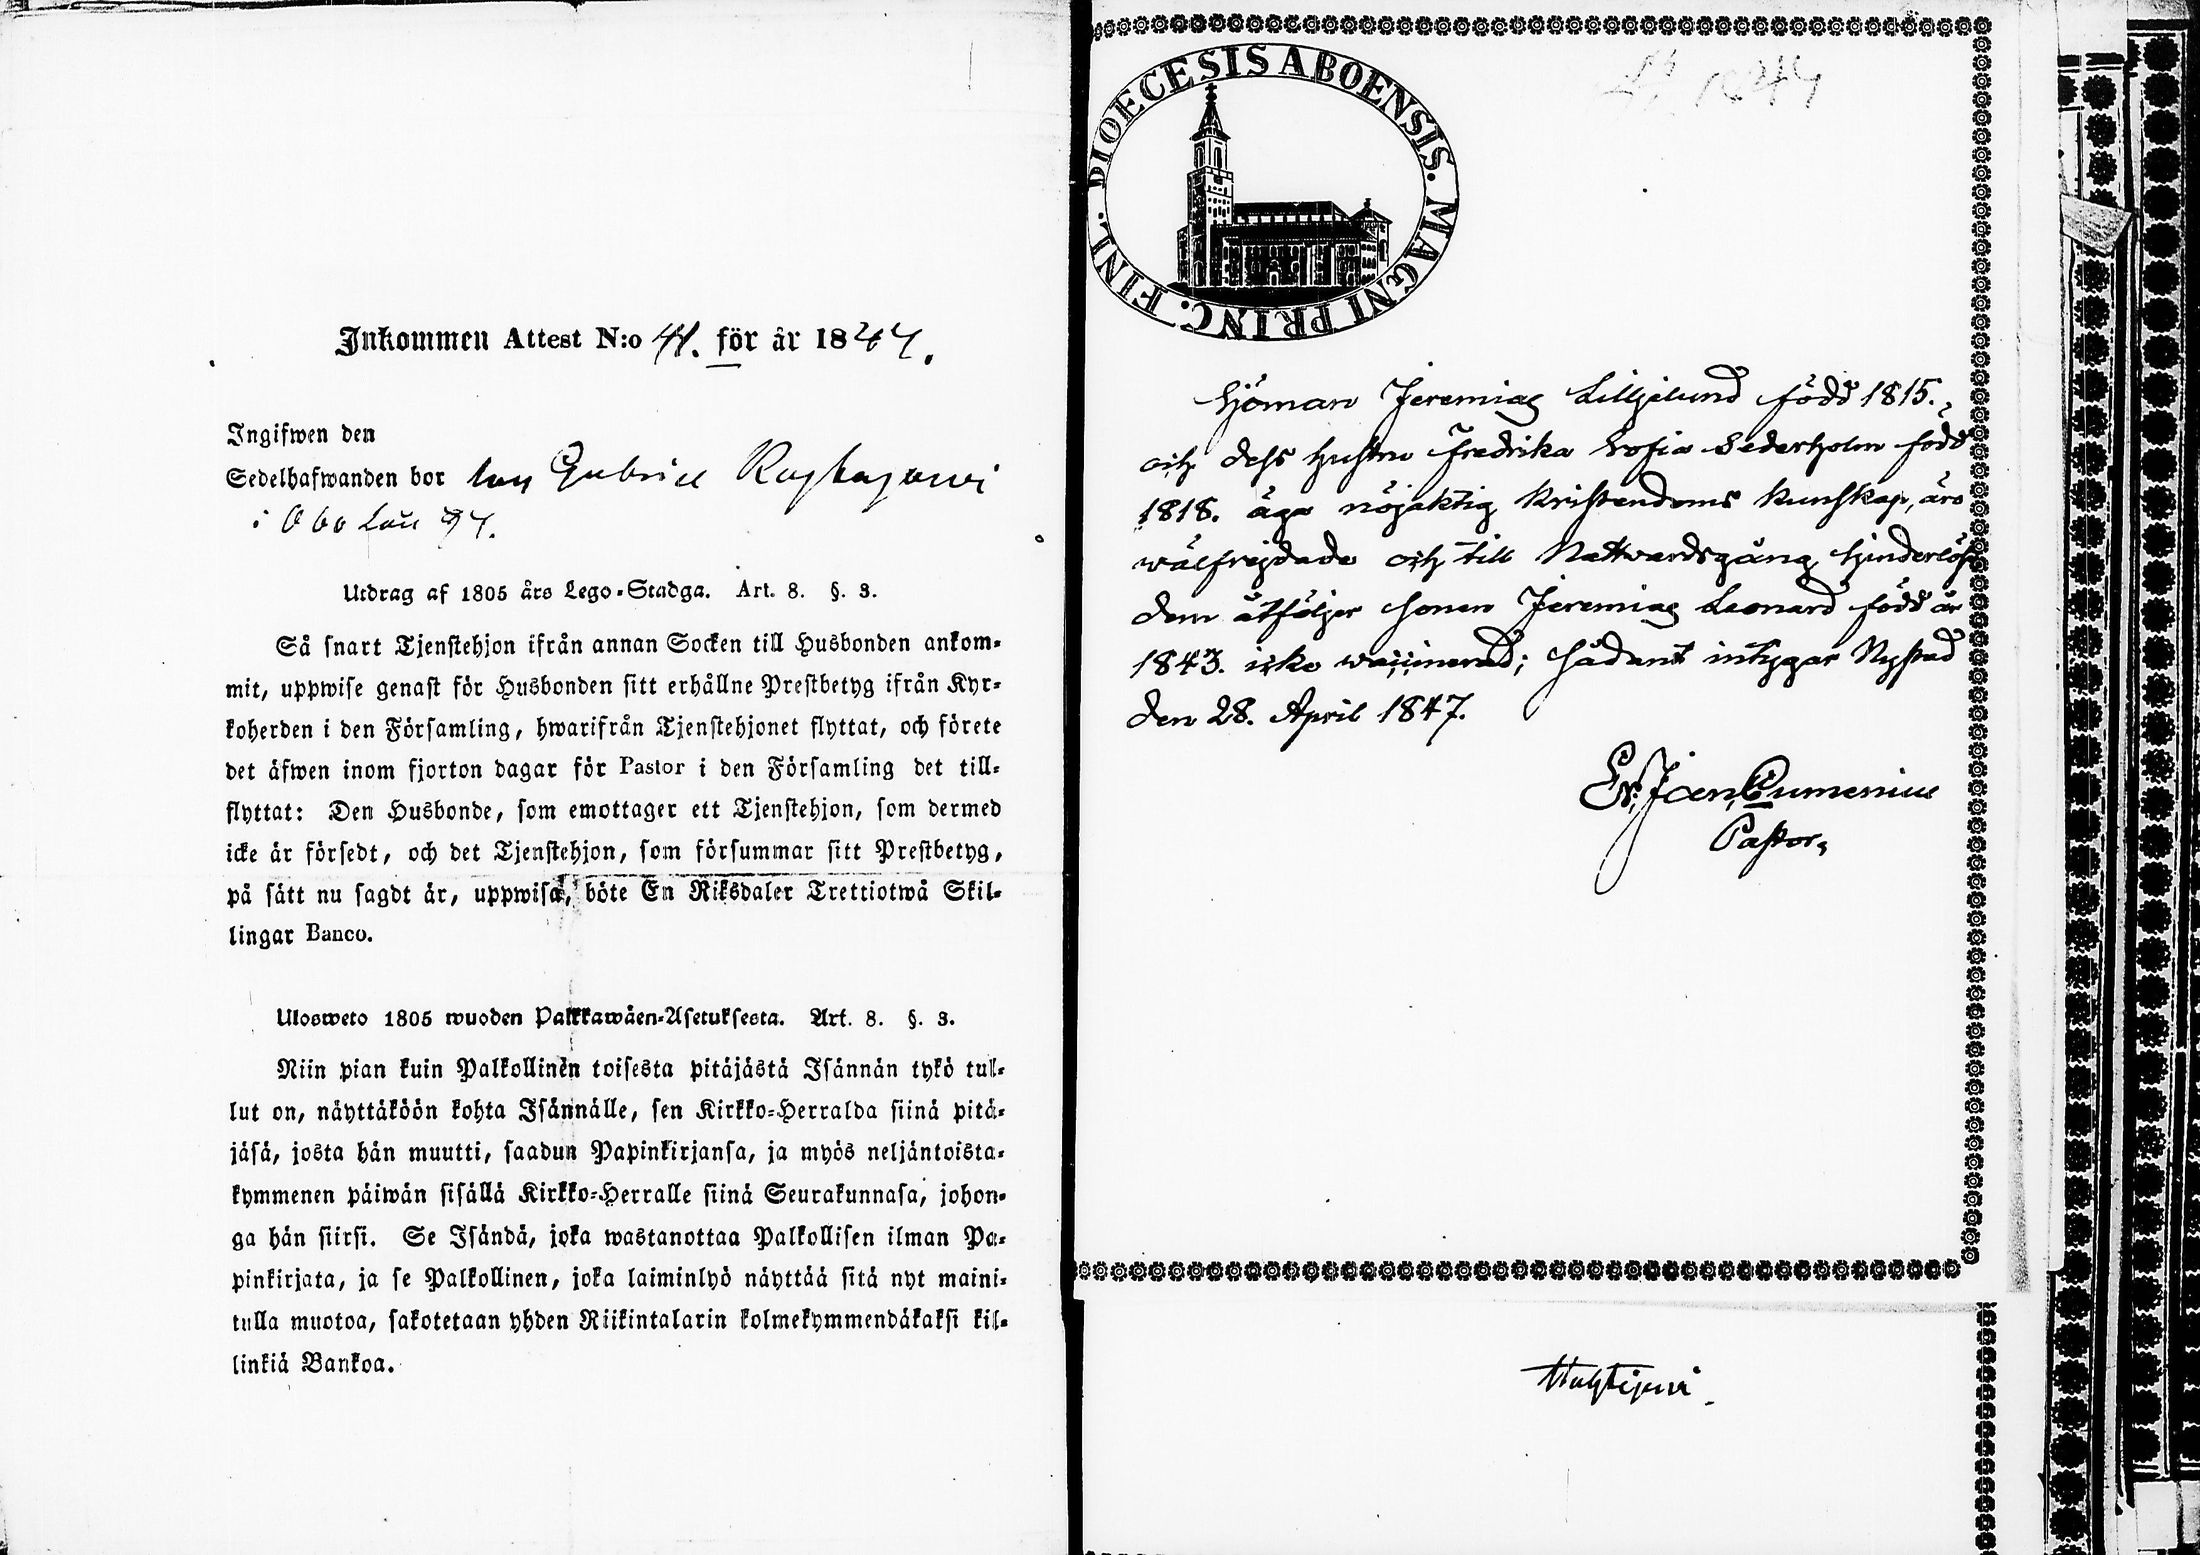 Inkommen Attest N:o 41. för år 1847.
Ingifwen den
Sedelhafwanden bor hos Gabriel
i Åbo Län
Utdrag af 1805 års Lego-Stadga. Art. 8. §. 3.
Så snart Tjenstehjon ifrån annan Socken till Husbonden ankom-
mit, uppwise genast för Husbonden sitt erhållne Prestbetyg ifrån Kyr-
koherden i den Församling, hwarifrån Tjenstehjonet flyttat, och förete
det äfwen inom fjorton dagar för Pastor i den Församling det till-
flyttat: Den Husbonde, som emottager ett Tjenstehjon, som dermed
icke är försedt, och det Tjenstehjon, som försummar sitt Prestbetyg,
på sätt nu sagdt är, uppwisa, böte En Riksdaler Trettiotwå Skil-
lingar Banco.
Ulosweto 1805 wuoden Palkkawäen-Asetuksesta. Art. 8. §. 3.
Niin pian kuin Palkollinen toisesta pitäjästä Isännän tykö tul-
lut on, näyttäköön kohta Isännälle, sen Kirkko-Herralda siinä pitä-
jäsä, josta hän muutti, saadun Papinkirjansa, ja myös neljäntoista-
kymmenen päiwän sisällä Kirkko-Herralle siinä Seurakunnasa, johon-
ga hän siirsi. Se Isändä, joka wastanottaa Palkollisen ilman Pa-
pinkirjata, ja se Palkollinen, joka laiminlyö näyttää sitä nyt maini-
tulla muotoa, sakotetaan yhden Riikintalarin kolmekymmendäkaksi kil-
linkiä Bankoa.
DIOECESIS ABOENSIS. MAGNI PRINC. FINL.
Sjöman Jeremias Liljelund född 1815.
och dess hustru Fredrika Sofia Sederholm född
1818. äga nöjaktig Kristendoms kunskap, äro
wälfrejdade och till Nattwardsgång hinderlöse
dem åtföljer sonen Jeremias Leonard född år
1843. icke waccinerad; sådant intygar Nystad
den 28. April 1847.
Er. Joh. Cumenius
Pastor.